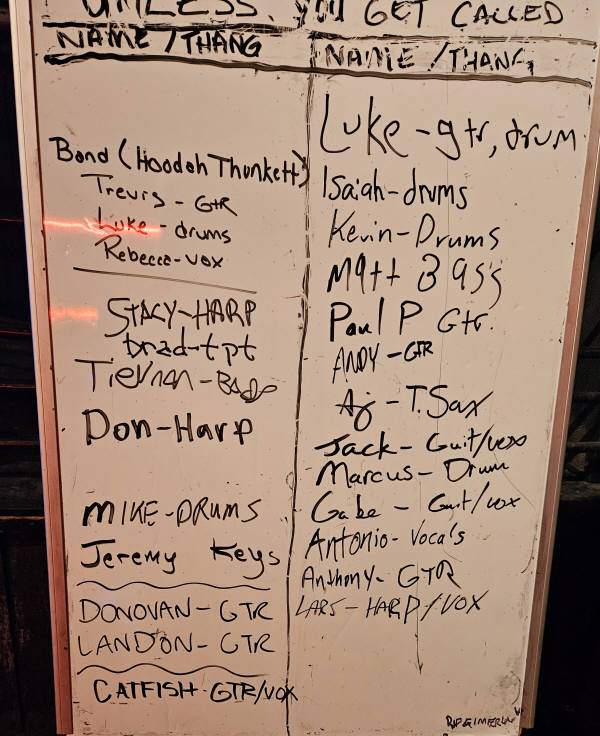 UNLESS, YOU GET CALLED
NAME/THANG
Band (Hoodoh Thunkett)
Trevrs - GTR
Luke - drums
Rebecca - vox
STACY-HARP
brad-tpt
Tiernan - Bass
Don-Harp
MIKE-DRUMS
Jeremy Keys
DONOVAN-GTR
LANDON-GTR
CATFISH-GTR/VOX
NAME/THANG
Luke-gtr, drum
Isaiah-drums
Kevin-Drums
Matt Bass
Paul P Gtr.
ANDY-GTR
Aj - T. Sax
Jack- Guit/vox
Marcus- Drum
Gabe - Guit/vox
Antonio- Vocals
Anthony- GTR
LARS-HARP/VOX